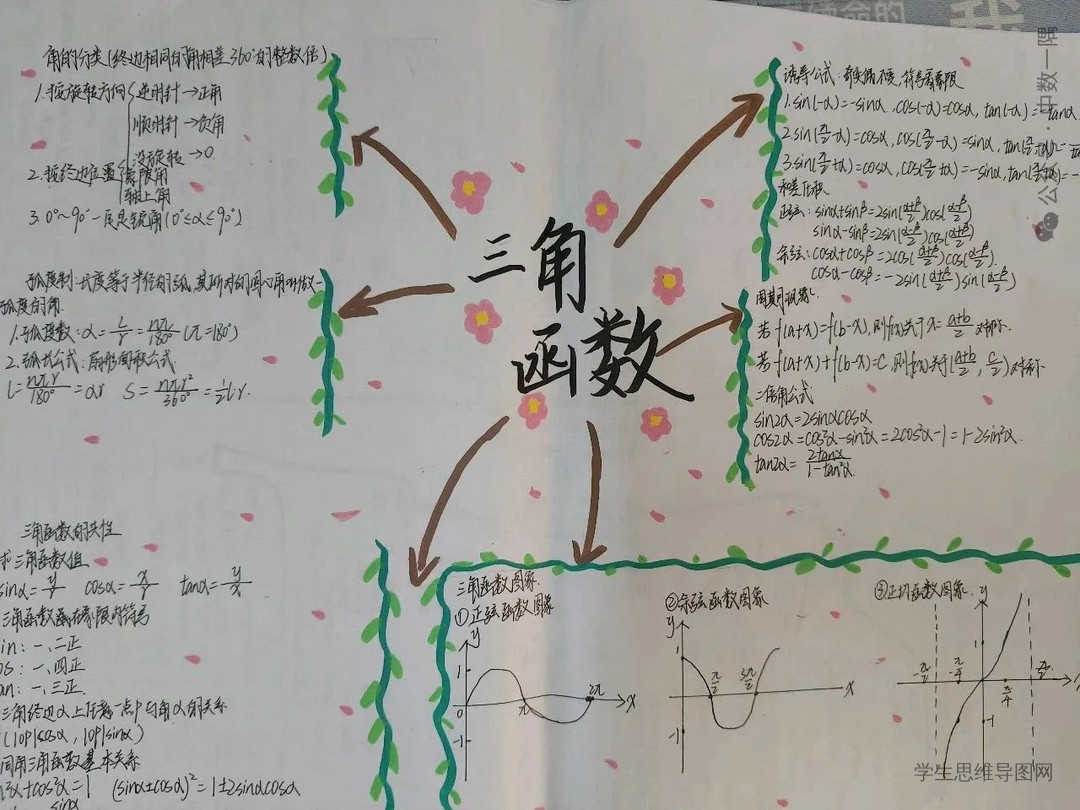 角的分类(终边相同的角相差360°的整数倍)
1.按旋转方向 逆时针→正角
顺时针→负角
没旋转→0
2.按终边位置 象限角
轴上角
3.0°~90°一定是锐角(0°≤α≤90°)
弧度制:长度等于半径的弧,其所对的圆心角叫做一
弧度的角.
1.弧度数:α=l/r=nπ/180°(π=180°)
2.弧长公式:扇形面积公式
l=nπr/180°=αr S=nπr²/360°=1/2 l·r.
三角函数的共性
求三角函数值
sinα=y/r cosα=x/r tanα=y/x
三角函数在象限内符号
in:一、二正
os:一、四正
an:一、三正.
三角终边α上任意一点P与角α的关系
(|OP|cosα, |OP|sinα)
同角三角函数基本关系
²α+cos²α=1 (sinα±cosα)²=1±2sinαcosα
sinα
三角
函数
诱导公式:奇变偶不变,符号看象限
1.sin(-α)=-sinα, cos(-α)=cosα, tan(-α)=-tanα
2.sin(π/2-α)=cosα, cos(π/2-α)=sinα, tan(π/2-α)=
3.sin(π/2+α)=cosα, cos(π/2+α)=-sinα, tan(π/2+α)=-
和差化积
正弦:sinα+sinβ=2sin(α+β/2)cos(α-β/2)
sinα-sinβ=2sin(α-β/2)cos(α+β/2)
余弦:cosα+cosβ=2cos(α+β/2)cos(α-β/2)
cosα-cosβ=-2sin(α+β/2)sin(α-β/2)
周期现象.
若f(a+x)=f(b-x),则f(x)关于x=a+b/2对称.
若f(a+x)+f(b-x)=c,则f(x)关于(a+b/2, c/2)对称
二倍角公式
sin2α=2sinαcosα
cos2α=cos²α-sin²α=2cos²α-1=1-2sin²α.
tan2α=2tanα/1-tan²α
三角函数图象.
①正弦函数图象
y
1
0
π
2π
x
-1
②余弦函数图象
y
1
π/2
3π/2
x
-1
③正切函数图象.
y
1
-π/2
-π/4
π/4
π/2
-1
公众号·中数一隅
学生思维导图网